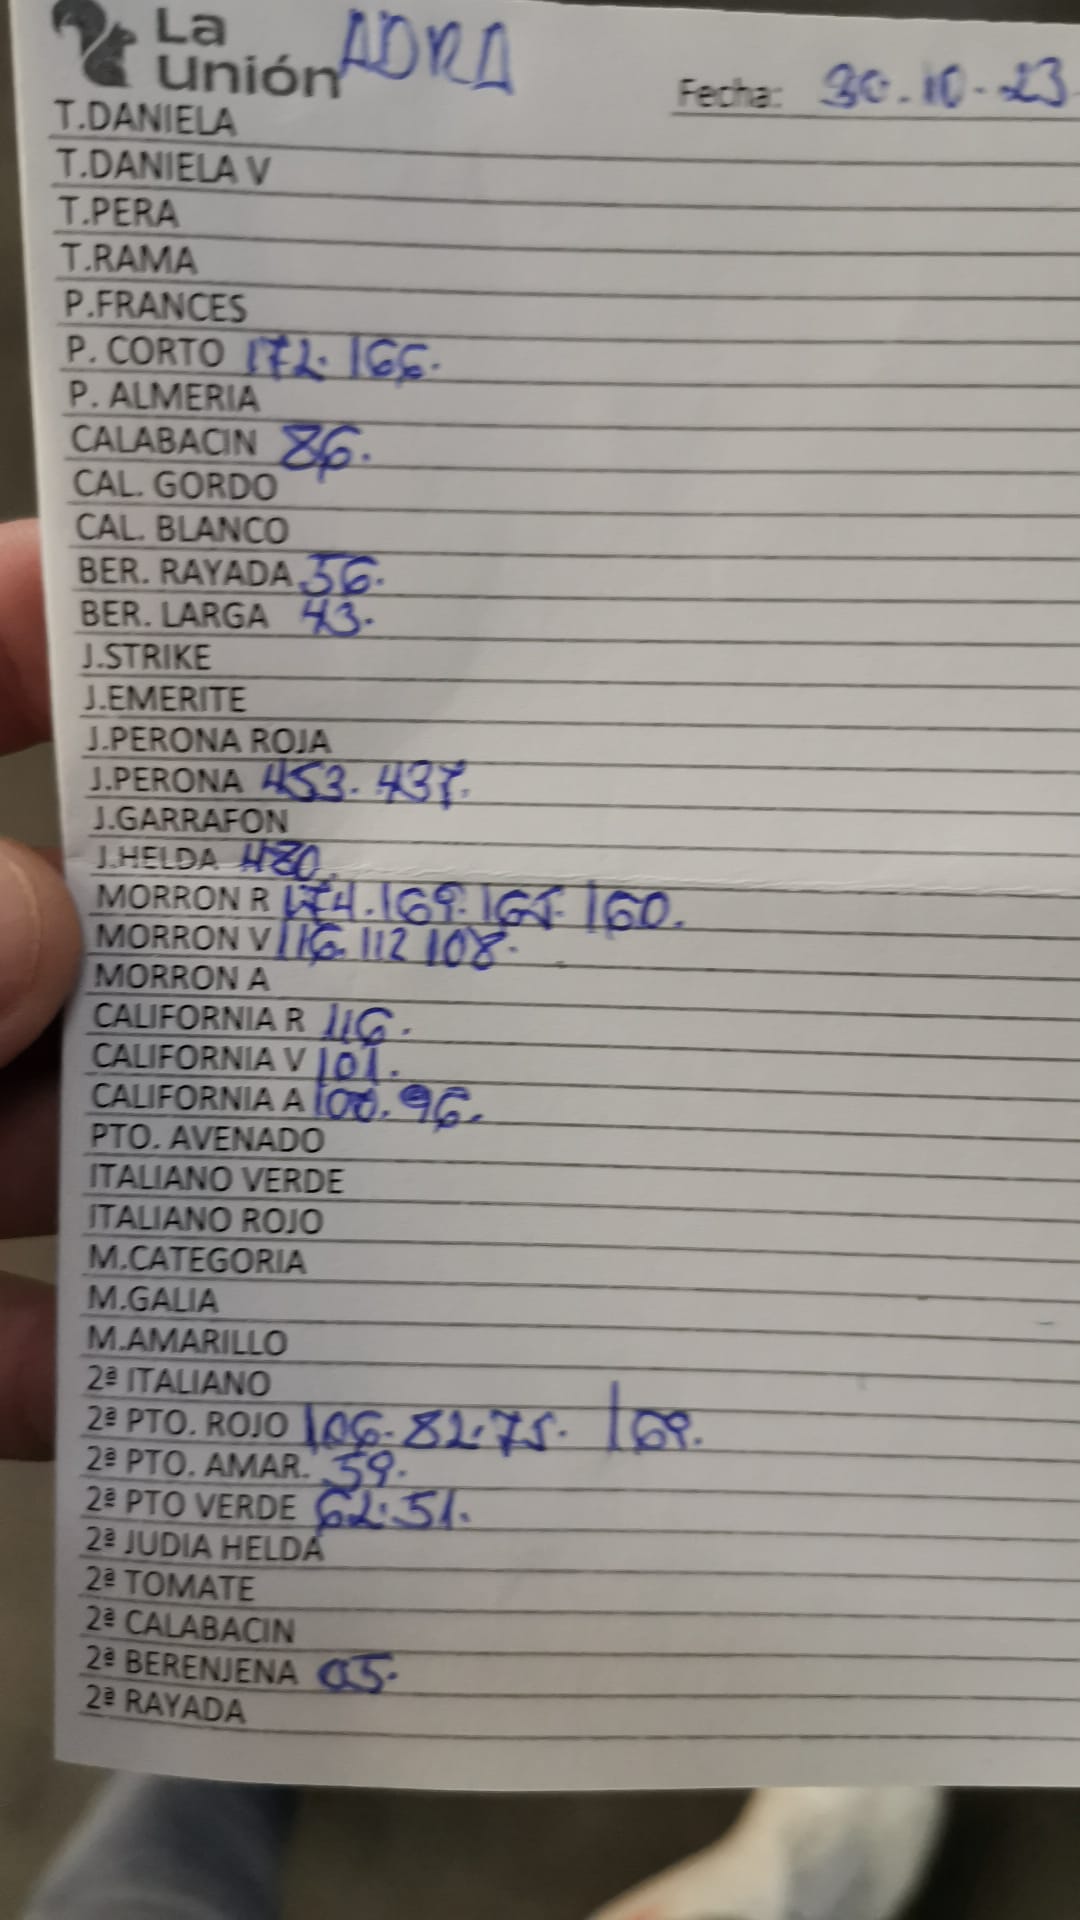 La
Unión ADRA Fecha: 30.10.23
T.DANIELA
T.DANIELA V
T.PERA
T.RAMA
P.FRANCES
P. CORTO 172. 166.
P. ALMERIA
CALABACIN 86.
CAL. GORDO
CAL. BLANCO
BER. RAYADA 56.
BER. LARGA 43.
J.STRIKE
J.EMERITE
J.PERONA ROJA
J.PERONA 453. 437.
J.GARRAFON
J.HELDA 480.
MORRON R 174. 169. 165. 160.
MORRON V 116. 112 108.
MORRON A
CALIFORNIA R 116.
CALIFORNIA V 101.
CALIFORNIA A 100. 96.
PTO. AVENADO
ITALIANO VERDE
ITALIANO ROJO
M.CATEGORIA
M.GALIA
M.AMARILLO
2ª ITALIANO
2ª PTO. ROJO 106. 82. 75. 169.
2ª PTO. AMAR. 59.
2ª PTO VERDE 62. 51.
2ª JUDIA HELDA
2ª TOMATE
2ª CALABACIN
2ª BERENJENA 05.
2ª RAYADA